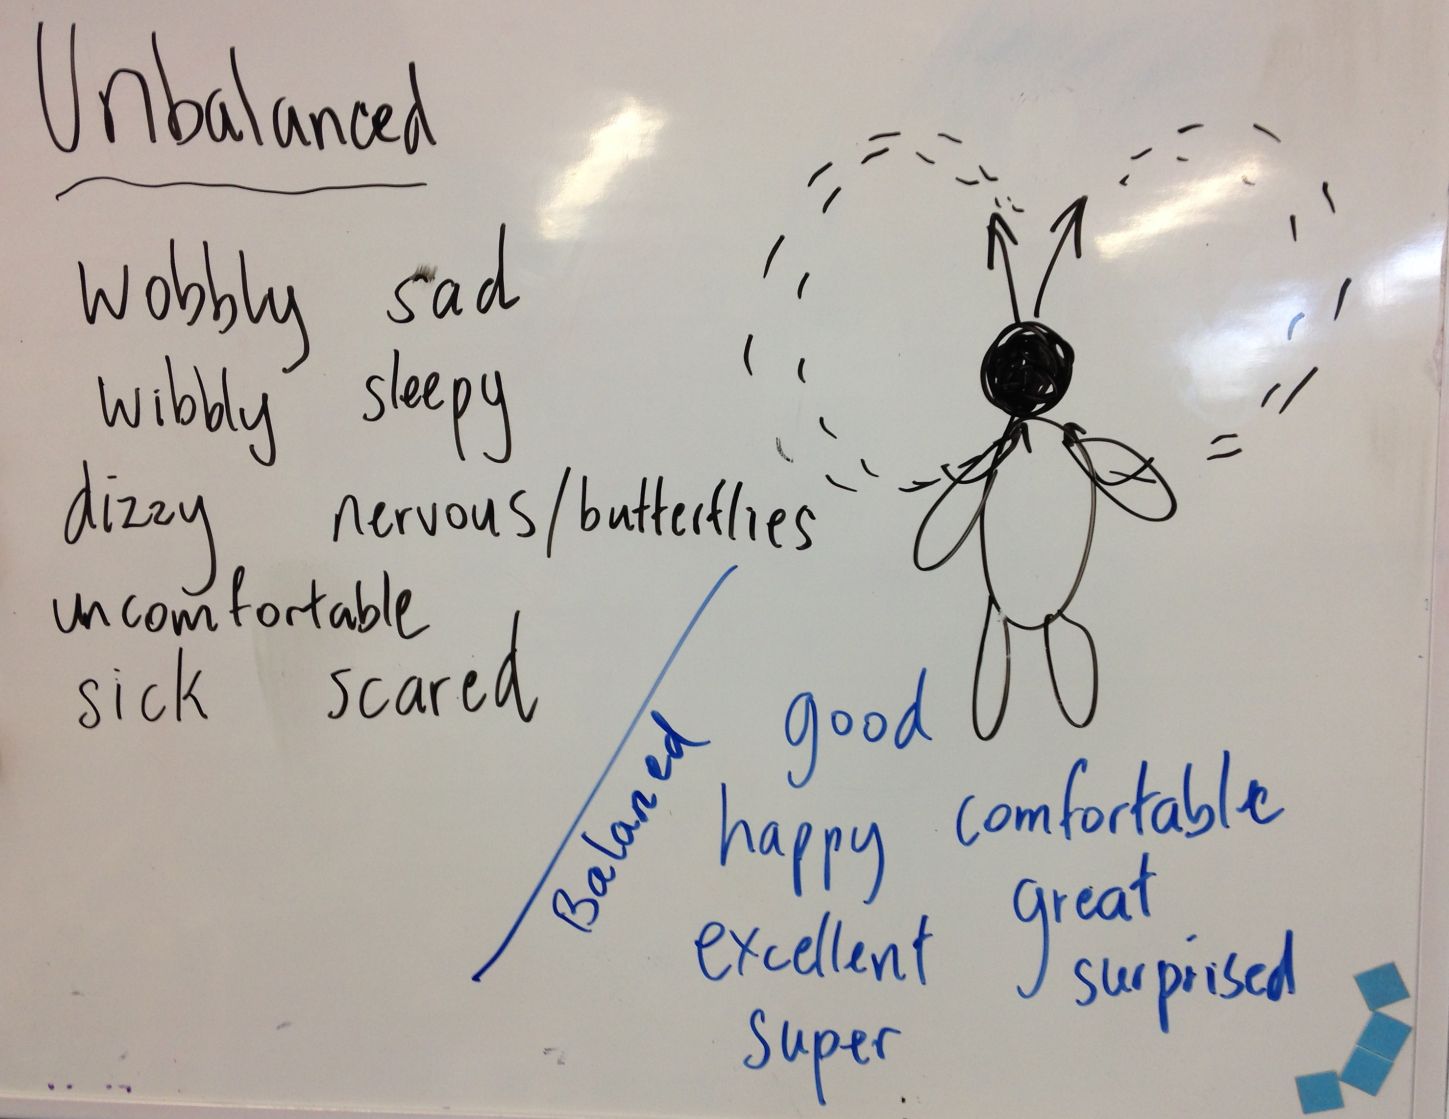 Unbalanced
wobbly sad
wibbly sleepy
dizzy nervous/butterflies
uncomfortable
sick scared
Balanced
good
happy comfortable
great
excellent surprised
super